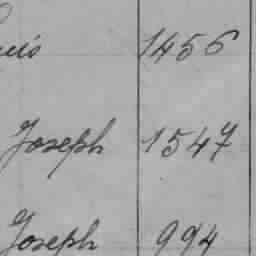 1456
Joseph 1547
Joseph 994